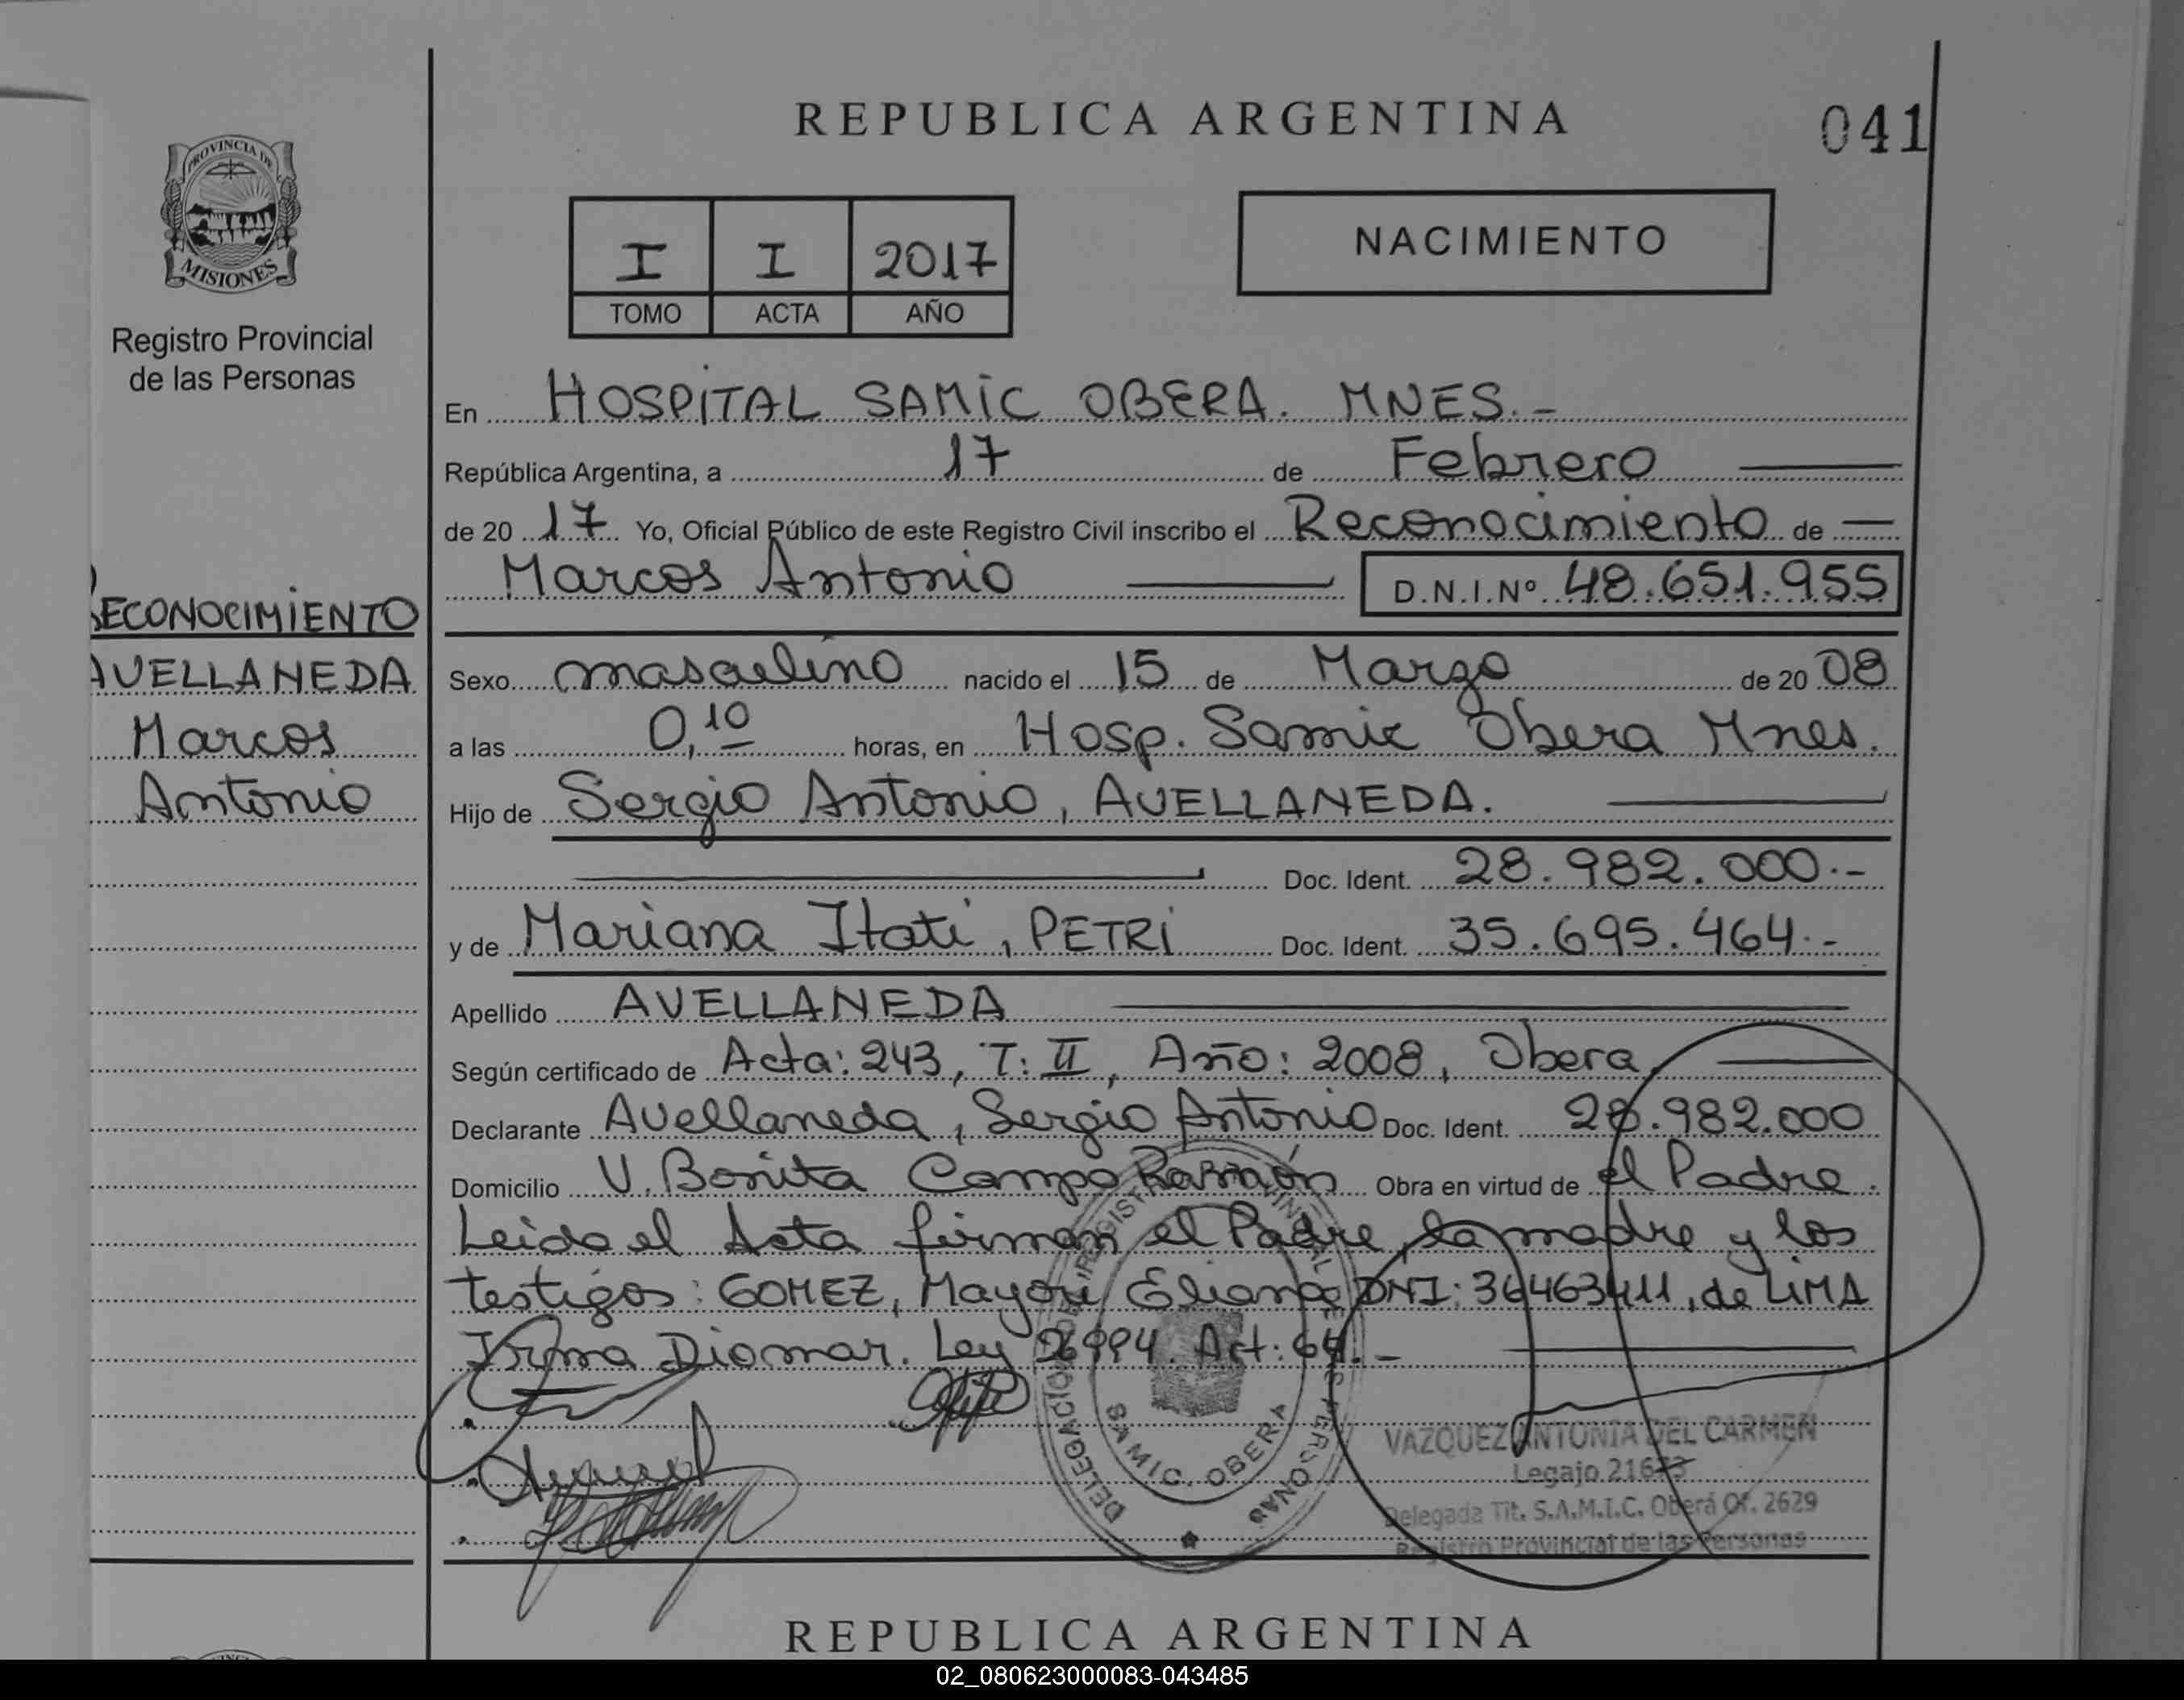 REPUBLICA ARGENTINA
041
PROVINCIA DE
MISIONES
Registro Provincial
de las Personas
I I 2017
TOMO ACTA AÑO
NACIMIENTO
En HOSPITAL SAMIC OBERA. MNES.-
República Argentina, a 17 de Febrero
de 20 17 Yo, Oficial Público de este Registro Civil inscribo el Reconocimiento de
Marcos Antonio D.N.I.Nº 48.651.955
RECONOCIMIENTO
AVELLANEDA
Marcos
Antonio
Sexo masculino nacido el 15 de Marzo de 20 08
a las 0,10 horas, en Hosp. Samic Obera Mnes.
Hijo de Sergio Antonio, AVELLANEDA.
Doc. Ident. 28.982.000.-
y de Mariana Itati, PETRI Doc. Ident. 35.695.464.-
Apellido AVELLANEDA
Según certificado de Acta: 243, T: II, Año: 2008, Obera,
Declarante Avellaneda, Sergio Antonio Doc. Ident. 28.982.000
Domicilio V. Bonita Campo Ramón Obra en virtud de el Padre.
Leida el Acta firman el Padre, la madre y los
testigos: GOMEZ, Eliana DNI: 36463411, de LIMA
Irma Diomar. Ley 26994. Art: 64.-
SAMIC. OBERA
VAZQUEZ ANTONIA DEL CARMEN
Legajo 21673
Delegada Tit. S.A.M.I.C. Oberá Of. 2629
Registro Provincial de las Personas
REPUBLICA ARGENTINA
02_080623000083-043485